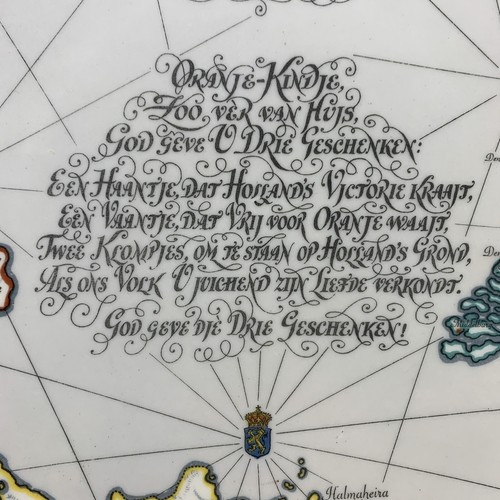 Oranje-Kindje,
Zoo ver van Huys,
God geve U Drie Geschenken:
Een Haantje, dat Holland's Victorie kraait,
Een Vaantje, dat Vrij voor Oranje waait,
Twee Klompjes, om te staan op Holland's Grond,
Als ons Volk U juichend zijn Liefde verkondt.
God geve die Drie Geschenken!
Halmaheira